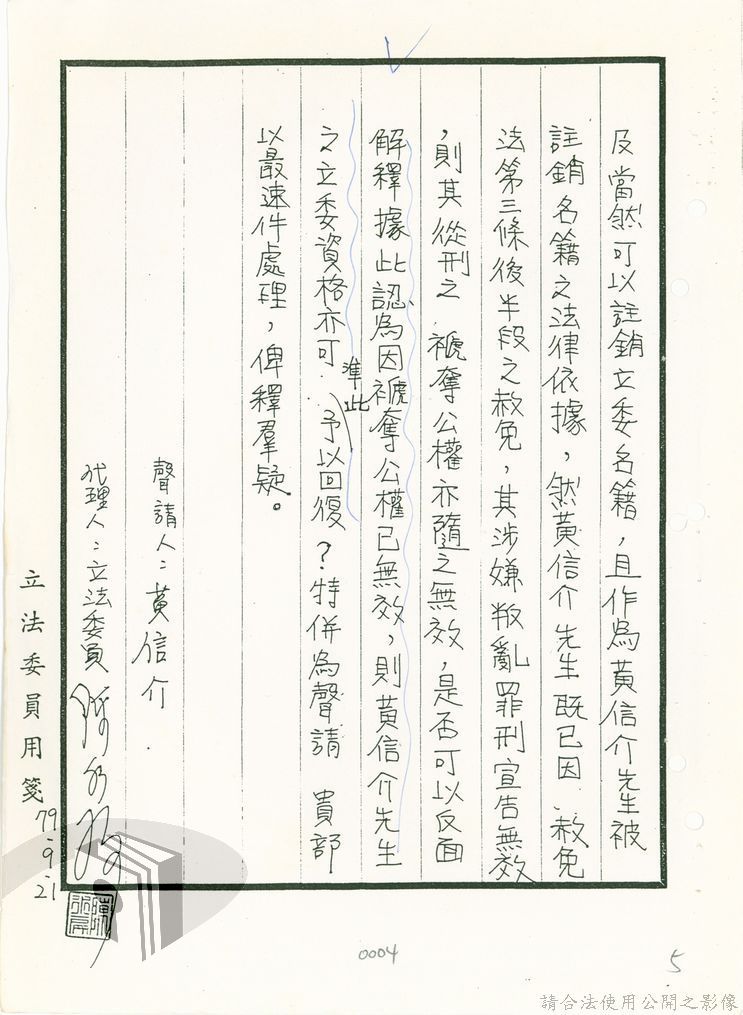 及當然可以註銷立委名籍，且作為黃信介先生被
註銷名籍之法律依據，然黃信介先生既已因 赦免
法第三條後半段之赦免，其涉嫌叛亂罪刑宣告無效
，則其從刑之 褫奪公權亦隨之無效，是否可以反面
解釋據此認為因褫奪公權已無效，則黃信介先生
之立委資格亦可 準此 予以回復？特併為聲請 貴部
以最速件處理，俾釋羣疑。
聲請人：黃信介
代理人：立法委員
立法委員用箋
79.9.21
0004
5
請合法使用公開之影像